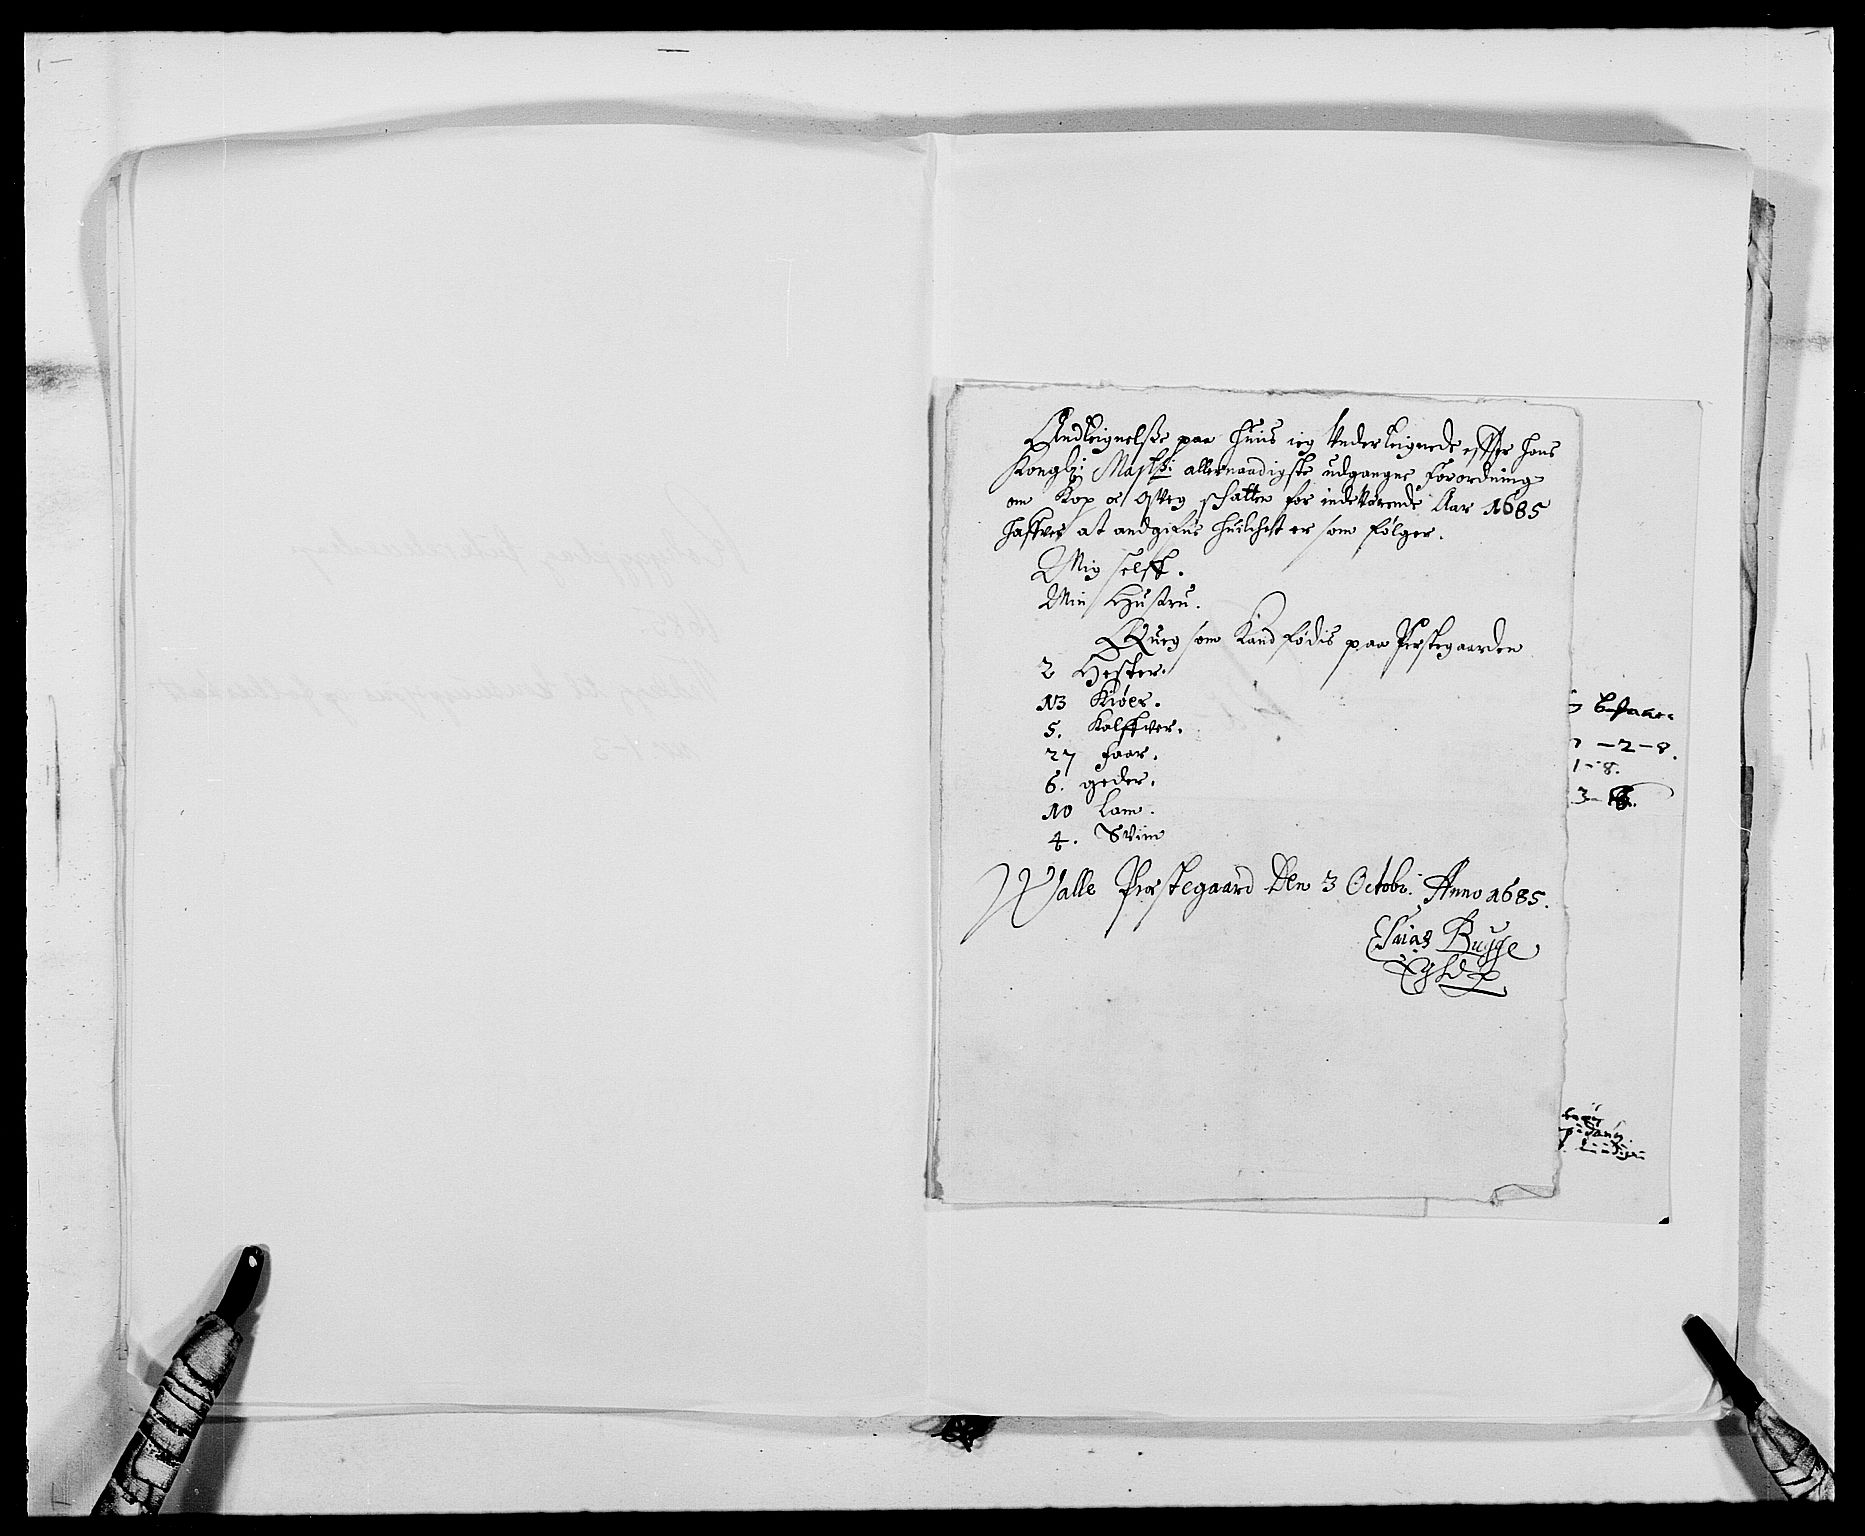 Andteignelse paa huis ieg Underteignede effter hans
Konglig: Maytz: allernaadigste udgangne Forordning
om Kop oc Qveg schatten for indeværende Aar 1685
haffver at andgifue huilchet er som følger.
Mig selff.
Min Hustru.
Queg som Kand fødis paa Prestegaarden
2 Hester.
13 Kiøer.
5. Kalffver.
27 faar.
6. geder.
10 Lam.
4. Sviin
Walle Præstegaard Den 3 Octobr: Anno 1685.
Esaias Bugge
- 2 - 8.
1 - 8.
3 -
1685